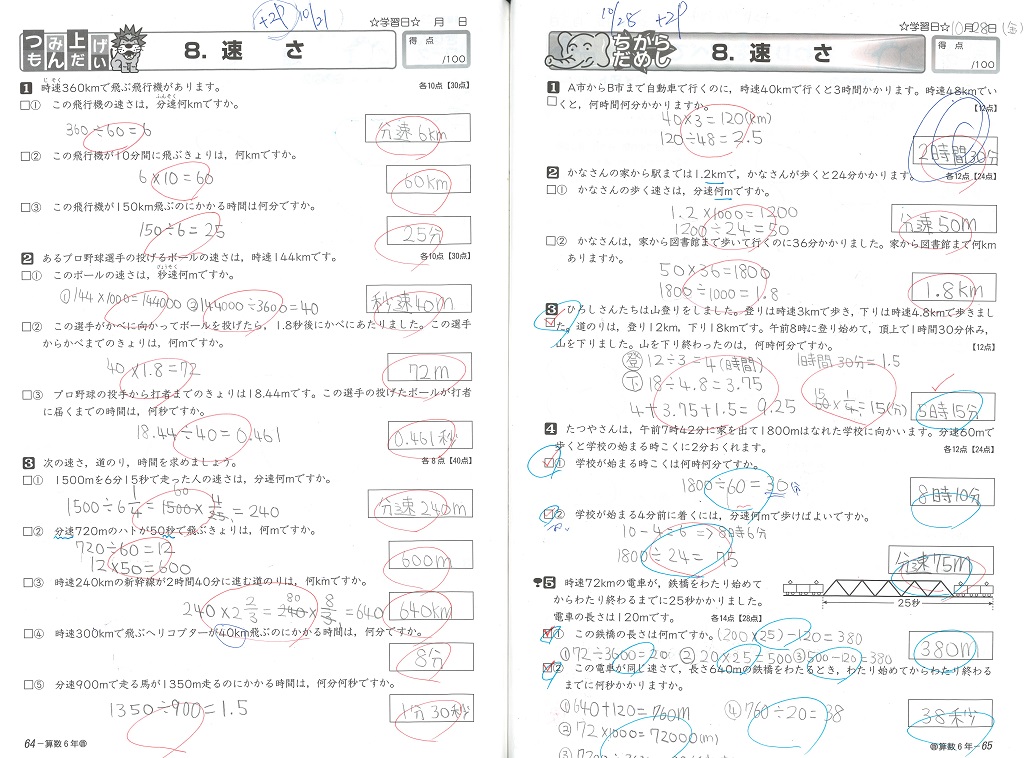 +2P 10/21
☆学習日☆ 月 日
つみ上げもんだい
8. 速 さ
得点
/100
1 時速360kmで飛ぶ飛行機があります。 各10点【30点】
じそく
□① この飛行機の速さは，分速何kmですか。
ふんそく
360÷60=6
分速6km
□② この飛行機が10分間に飛ぶきょりは，何kmですか。
6×10=60
60km
□③ この飛行機が150km飛ぶのにかかる時間は何分ですか。
150÷6=25
25分
2 あるプロ野球選手の投げるボールの速さは，時速144kmです。 各10点【30点】
□① このボールの速さは，秒速何mですか。
びょうそく
①144×1000=144000 ②144000÷3600=40
秒速40m
□② この選手がかべに向かってボールを投げたら，1.8秒後にかべにあたりました。この選手
からかべまでのきょりは，何mですか。
40×1.8=72
72m
□③ プロ野球の投手から打者までのきょりは18.44mです。この選手の投げたボールが打者
に届くまでの時間は，何秒ですか。
18.44÷40=0.461
0.461秒
3 次の速さ，道のり，時間を求めましょう。 各8点【40点】
□① 1500mを6分15秒で走った人の速さは，分速何mですか。
分速240m
□② 分速720mのハトが50秒で飛ぶきょりは，何mですか。
720÷60=12
12×50=600
600m
□③ 時速240kmの新幹線が2時間40分に進む道のりは，何kmですか。
240×2 2/3=240×8/3=640
80
640km
□④ 時速300kmで飛ぶヘリコプターが40km飛ぶのにかかる時間は，何分ですか。
8分
□⑤ 分速900mで走る馬が1350m走るのにかかる時間は，何分何秒ですか。
1350÷900=1.5
1分30秒
64-算数6年
10/28 +2P
☆学習日☆ 10月28日(金)
ちからだめし
8. 速 さ
得点
/100
1 A市からB市まで自動車で行くのに，時速40kmで行くと3時間かかります。時速48kmでい
□くと，何時間何分かかりますか。 【12点】
40×3=120(km)
120÷48=2.5
2時間30分
2 かなさんの家から駅までは1.2kmで，かなさんが歩くと24分かかります。 各12点【24点】
□① かなさんの歩く速さは，分速何mですか。
1.2×1000=1200
1200÷24=50
分速50m
□② かなさんは，家から図書館まで歩いて行くのに36分かかりました。家から図書館まで何km
ありますか。
50×36=1800
1800÷1000=1.8
1.8km
3 ひろしさんたちは山登りをしました。登りは時速3kmで歩き，下りは時速4.8kmで歩きまし
□た。道のりは，登り12km，下り18kmです。午前8時に登り始めて，頂上で1時間30分休み，
山を下りました。山を下り終わったのは，何時何分ですか。 【12点】
登 12÷3=4(時間) 1時間30分=1.5
下 18÷4.8=3.75
4+3.75+1.5=9.25
5時15分
4 たつやさんは，午前7時42分に家を出て1800mはなれた学校に向かいます。分速60mで
歩くと学校の始まる時こくに2分おくれます。 各12点【24点】
□① 学校が始まる時こくは何時何分ですか。
1800÷60=30分
8時10分
□② 学校が始まる4分前に着くには，分速何mで歩けばよいですか。
10-4=6 =>8時6分
1800÷24=75
分速75m
5 時速72kmの電車が，鉄橋をわたり始めて
からわたり終わるまでに25秒かかりました。
電車の長さは120mです。 各14点【28点】
25秒
□① この鉄橋の長さは何mですか。(200×25)-120=380
①72÷3600=20 ②20×25=500 ③500-120=380
380m
□② この電車が同じ速さで，長さ640mの鉄橋をわたるとき，わたり始めてからわたり終わる
までに何秒かかりますか。
①640+120=760m ④760÷20=38
②72×1000=72000(m)
38秒
算数6年-65